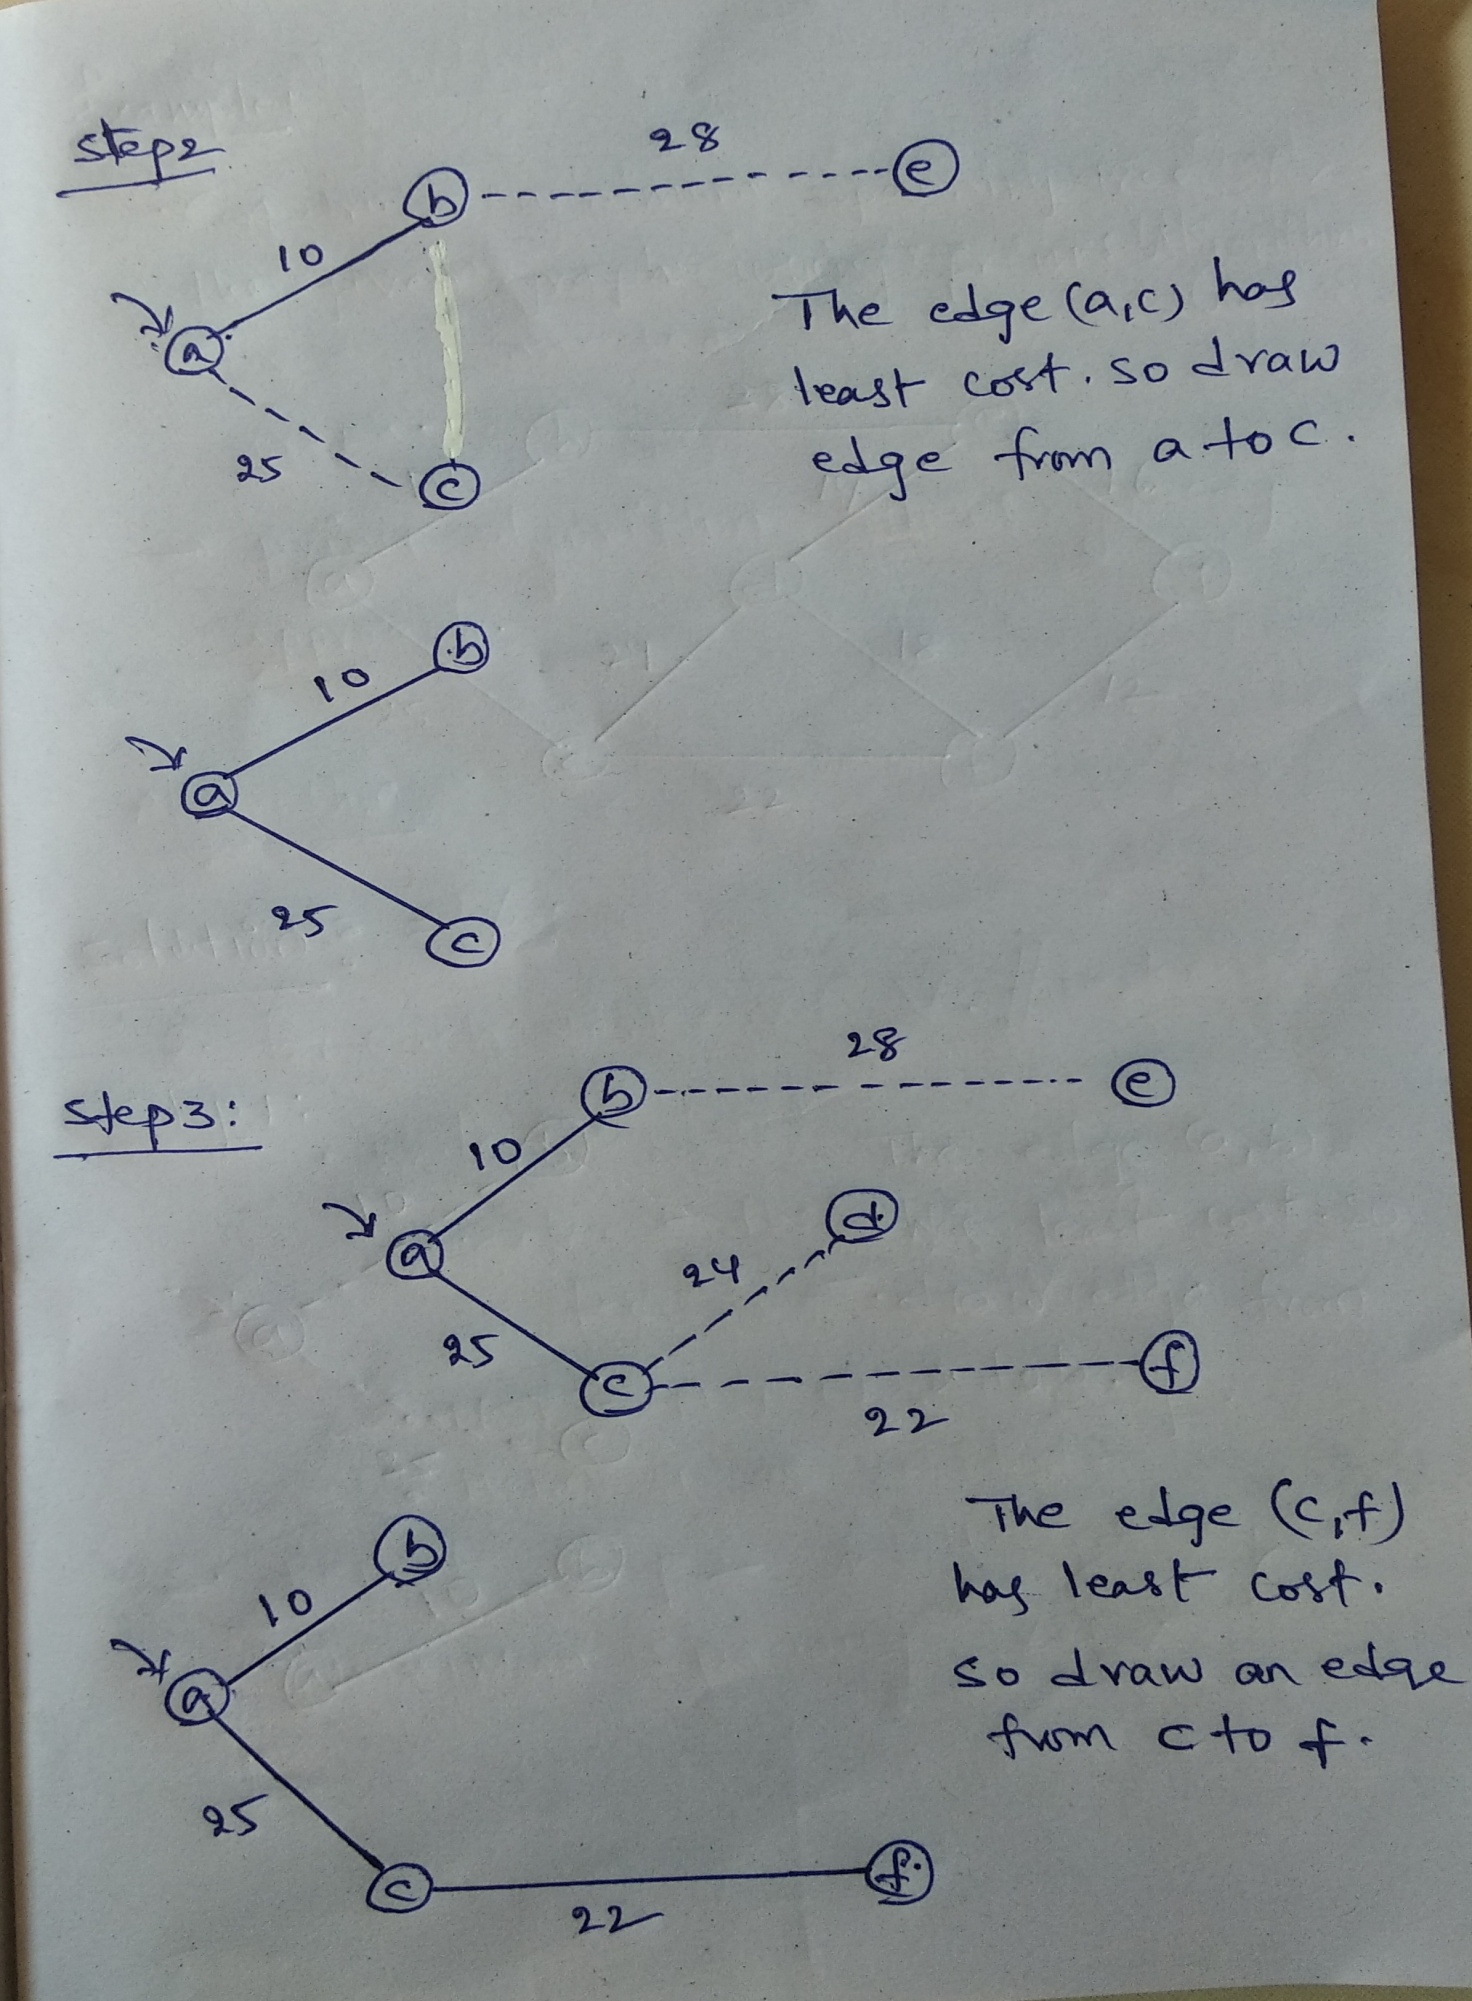 step2
28
b
e
10
a
25
c
The edge (a,c) has
least cost. so draw
edge from a to c.
b
10
a
25
c
step3:
28
b
e
10
d
a
24
25
c
f
22
The edge (c,f)
has least cost.
so draw an edge
from c to f.
b
10
a
25
c
f
22